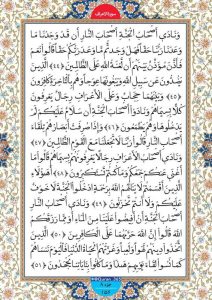 سورة الاعراف
وَنَادَىٰ أَصْحَابُ الْجَنَّةِ أَصْحَابَ النَّارِ أَن قَدْ وَجَدْنَا مَا
وَعَدَنَا رَبُّنَا حَقًّا فَهَلْ وَجَدتُّم مَّا وَعَدَ رَبُّكُمْ حَقًّا قَالُوا نَعَمْ
فَأَذَّنَ مُؤَذِّنٌ بَيْنَهُمْ أَن لَّعْنَةُ اللَّهِ عَلَى الظَّالِمِينَ ﴿٤٤﴾ الَّذِينَ
يَصُدُّونَ عَن سَبِيلِ اللَّهِ وَيَبْغُونَهَا عِوَجًا وَهُم بِالْآخِرَةِ كَافِرُونَ
﴿٤٥﴾ وَبَيْنَهُمَا حِجَابٌ وَعَلَى الْأَعْرَافِ رِجَالٌ يَعْرِفُونَ
كُلًّا بِسِيمَاهُمْ وَنَادَوْا أَصْحَابَ الْجَنَّةِ أَن سَلَامٌ عَلَيْكُمْ لَمْ
يَدْخُلُوهَا وَهُمْ يَطْمَعُونَ ﴿٤٦﴾ وَإِذَا صُرِفَتْ أَبْصَارُهُمْ تِلْقَاءَ
أَصْحَابِ النَّارِ قَالُوا رَبَّنَا لَا تَجْعَلْنَا مَعَ الْقَوْمِ الظَّالِمِينَ ﴿٤٧﴾
وَنَادَىٰ أَصْحَابُ الْأَعْرَافِ رِجَالًا يَعْرِفُونَهُم بِسِيمَاهُمْ قَالُوا مَا
أَغْنَىٰ عَنكُمْ جَمْعُكُمْ وَمَا كُنتُمْ تَسْتَكْبِرُونَ ﴿٤٨﴾ أَهَٰؤُلَاءِ
الَّذِينَ أَقْسَمْتُمْ لَا يَنَالُهُمُ اللَّهُ بِرَحْمَةٍ ادْخُلُوا الْجَنَّةَ لَا خَوْفٌ
عَلَيْكُمْ وَلَا أَنتُمْ تَحْزَنُونَ ﴿٤٩﴾ وَنَادَىٰ أَصْحَابُ النَّارِ
أَصْحَابَ الْجَنَّةِ أَنْ أَفِيضُوا عَلَيْنَا مِنَ الْمَاءِ أَوْ مِمَّا رَزَقَكُمُ
اللَّهُ قَالُوا إِنَّ اللَّهَ حَرَّمَهُمَا عَلَى الْكَافِرِينَ ﴿٥٠﴾ الَّذِينَ
اتَّخَذُوا دِينَهُمْ لَهْوًا وَلَعِبًا وَغَرَّتْهُمُ الْحَيَاةُ الدُّنْيَا فَالْيَوْمَ نَنسَاهُمْ
كَمَا نَسُوا لِقَاءَ يَوْمِهِمْ هَٰذَا وَمَا كَانُوا بِآيَاتِنَا يَجْحَدُونَ ﴿٥١﴾
جزء ٨
١٥٦